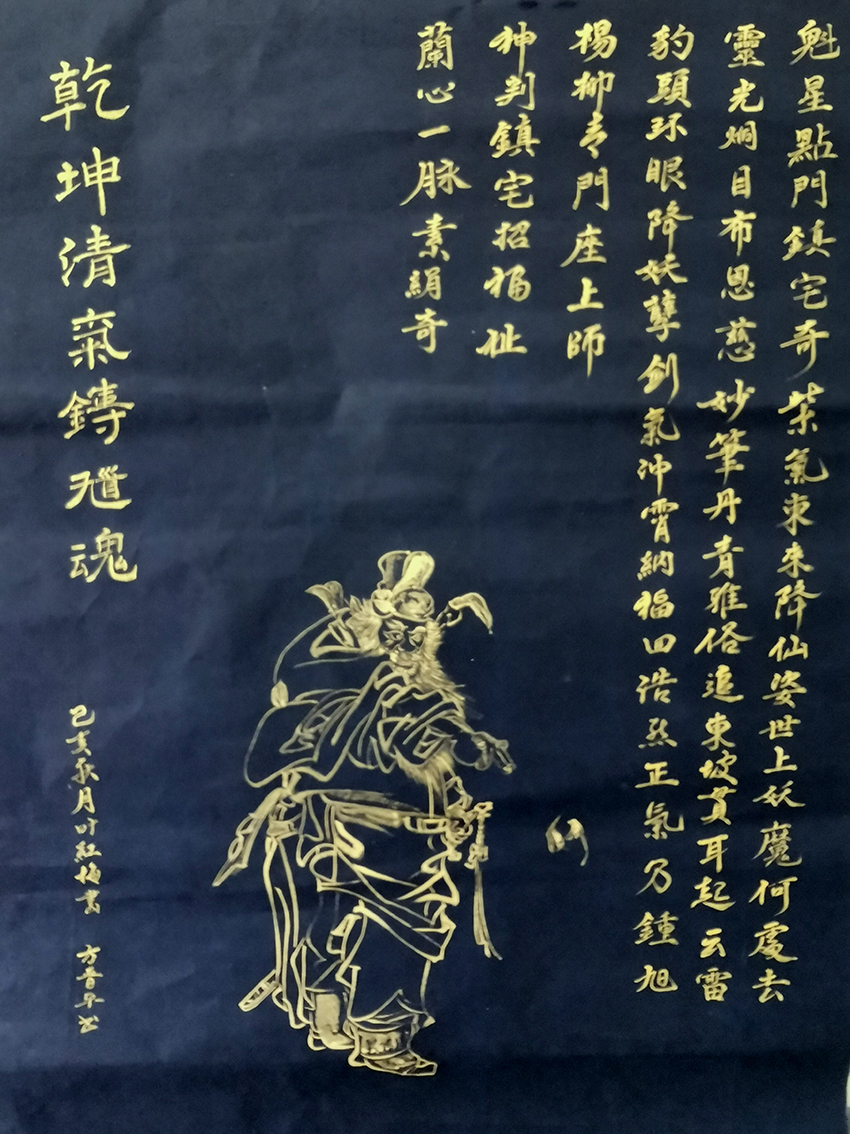 魁星點門鎮宅奇紫氣東来降仙姿世上妖魔何處去
靈光炯目布恩慈妙筆丹青雅俗追東坡貫耳起云雷
豹頭环眼降妖孽劍氣冲霄納福田浩然正氣乃鍾旭
楊柳青門座上師
神判鎮宅招福祉
蘭心一脉素絹奇
乾坤清氣鑄魂
己亥秋月叶紅梅書 方晋平